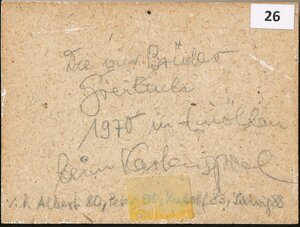 26
Die vier Brüder
Freitach
1970 in
beim Kartenspiel
v.l. Albert 80, Peter 90, Rudolf 83, Ludwig 88